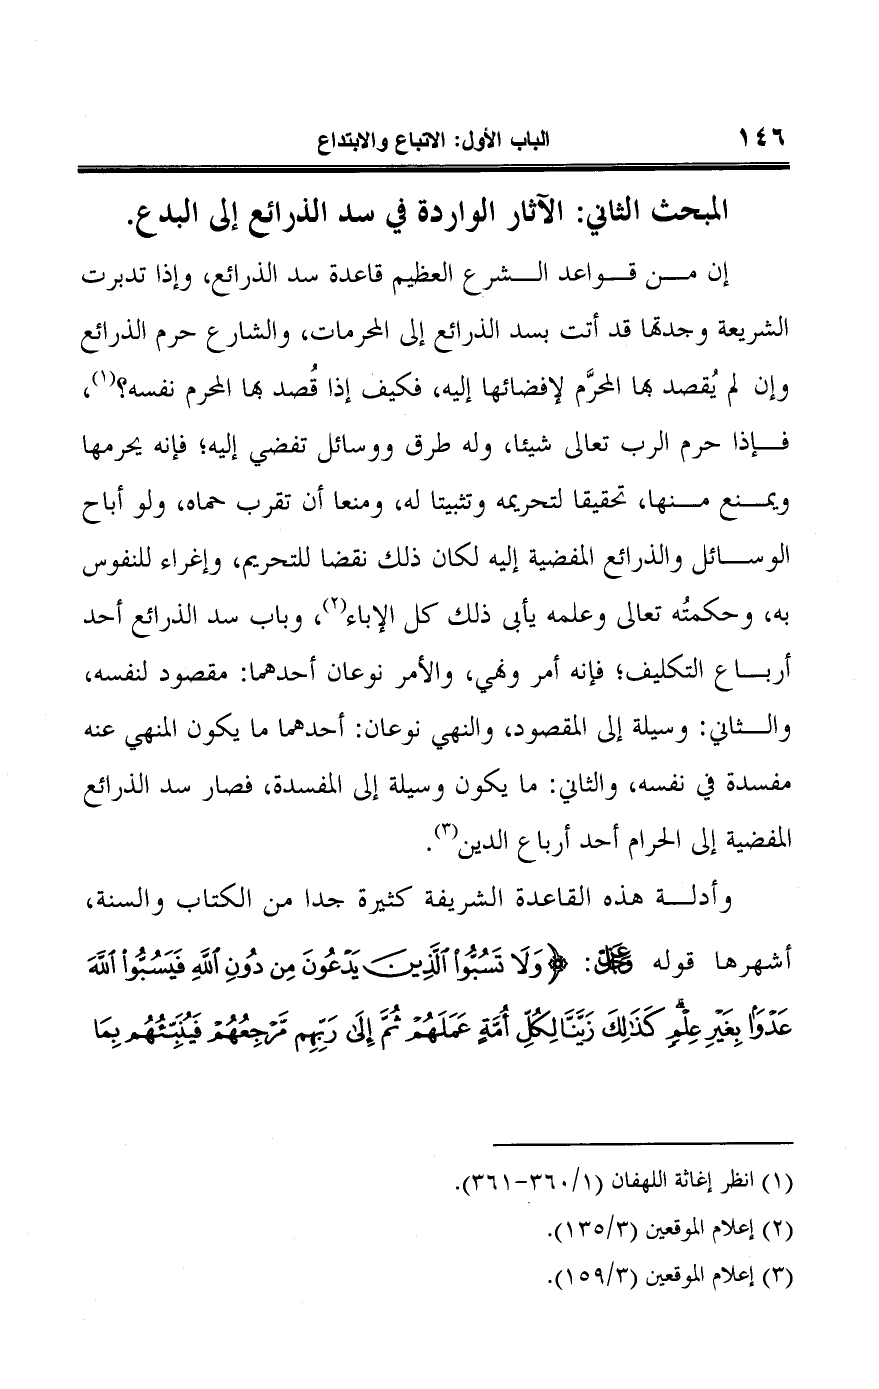 ١٤٦ الباب الأول: الاتباع والابتداع
المبحث الثاني: الآثار الواردة في سد الذرائع إلى البدع.
إن من قواعد الشرع العظيم قاعدة سد الذرائع، وإذا تدبرت
الشريعة وجدتها قد أتت بسد الذرائع إلى المحرمات، والشارع حرم الذرائع
وإن لم يُقصد بها المحرَّم لإفضائها إليه، فكيف إذا قُصد بها المحرم نفسه؟(١)،
فإذا حرم الرب تعالى شيئا، وله طرق ووسائل تفضي إليه؛ فإنه يحرمها
ويمنع منها، تحقيقا لتحريمه وتثبيتا له، ومنعا أن تقرب حماه، ولو أباح
الوسائل والذرائع المفضية إليه لكان ذلك نقضا للتحريم، وإغراء للنفوس
به، وحكمتُه تعالى وعلمه يأبى ذلك كل الإباء(٢)، وباب سد الذرائع أحد
أرباع التكليف؛ فإنه أمر ونهي، والأمر نوعان أحدهما: مقصود لنفسه،
والثاني: وسيلة إلى المقصود، والنهي نوعان: أحدهما ما يكون المنهي عنه
مفسدة في نفسه، والثاني: ما يكون وسيلة إلى المفسدة، فصار سد الذرائع
المفضية إلى الحرام أحد أرباع الدين(٣).
وأدلة هذه القاعدة الشريفة كثيرة جدا من الكتاب والسنة،
أشهرها قوله ﷿: ﴿وَلَا تَسُبُّوا۟ ٱلَّذِينَ يَدْعُونَ مِن دُونِ ٱللَّهِ فَيَسُبُّوا۟ ٱللَّهَ
عَدْوًۢا بِغَيْرِ عِلْمٍۗ كَذَٰلِكَ زَيَّنَّا لِكُلِّ أُمَّةٍ عَمَلَهُمْ ثُمَّ إِلَىٰ رَبِّهِم مَّرْجِعُهُمْ فَيُنَبِّئُهُم بِمَا
(١) انظر إغاثة اللهفان (٣٦٠/١-٣٦١).
(٢) إعلام الموقعين (١٣٥/٣).
(٣) إعلام الموقعين (١٥٩/٣).